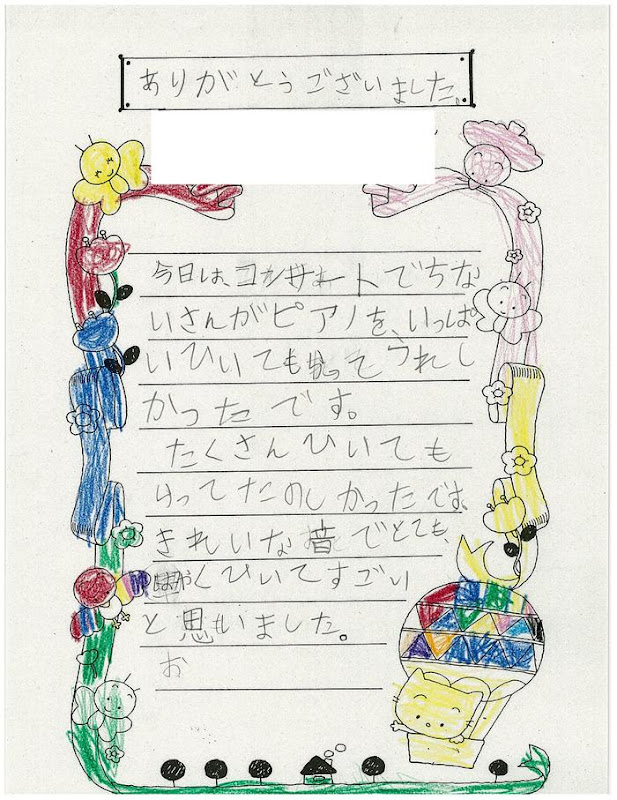 ありがとうございました。
今日は、コンサートでちな
いさんがピアノを、いっぱ
いひいてもらってうれし
かったです。
たくさんひいても
らってたのしかったです。
きれいな音でとても、
はやくひいてすごい
と思いました。
お